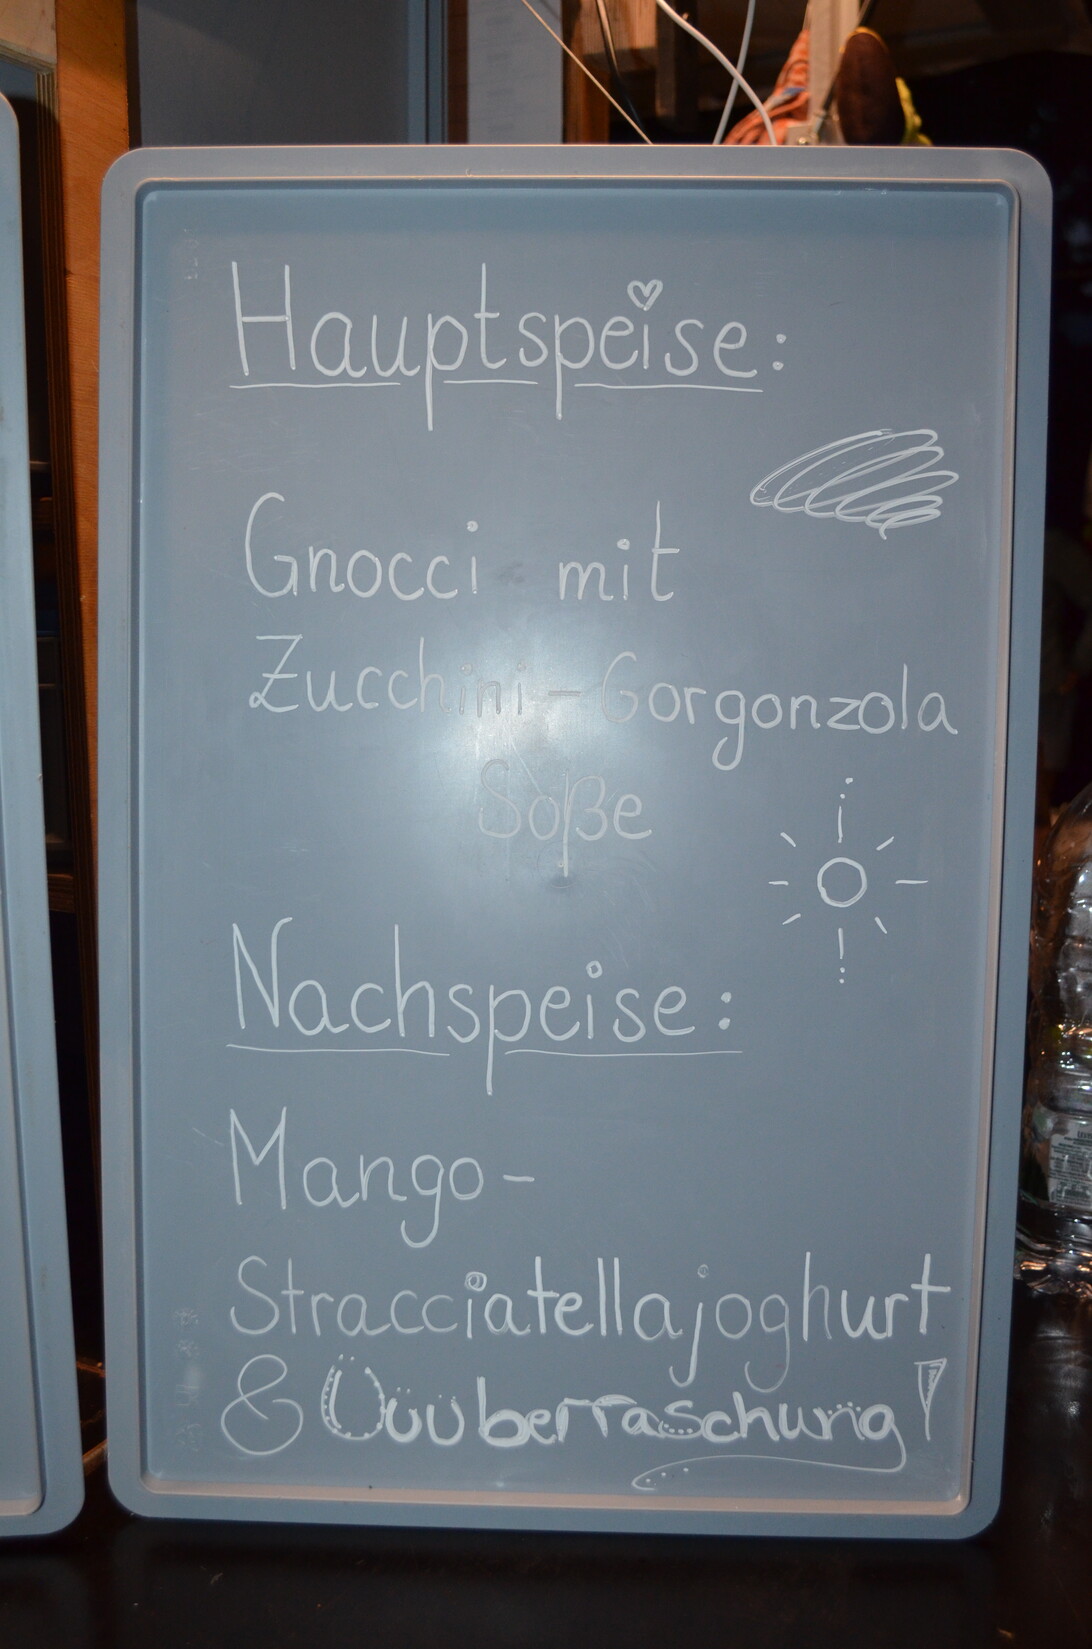 Hauptspeise:
Gnocci mit
Zucchini-Gorgonzola
Soße
Nachspeise:
Mango-
Stracciatellajoghurt
& Üüüberraschung!